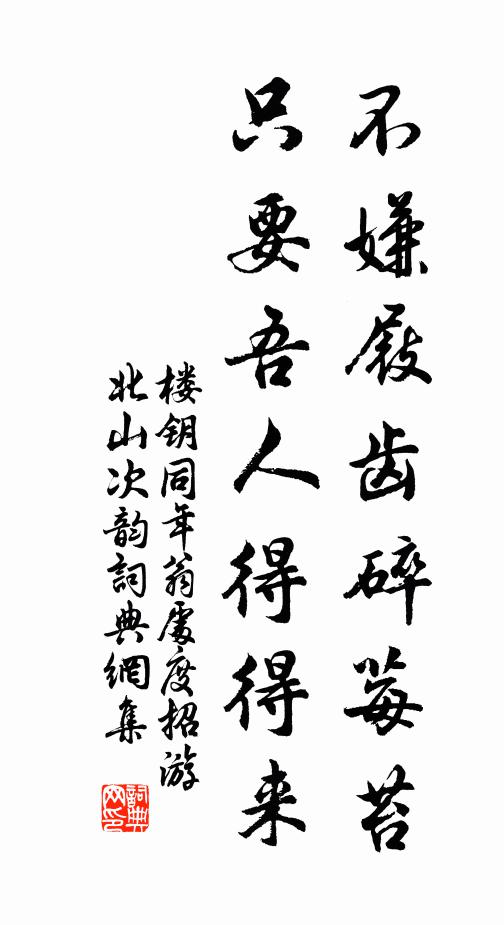 不嫌屐齿碎莓苔
只要吾人得得来
楼钥同年翁處度招游
北山次韵詞典網集
詞典
网印